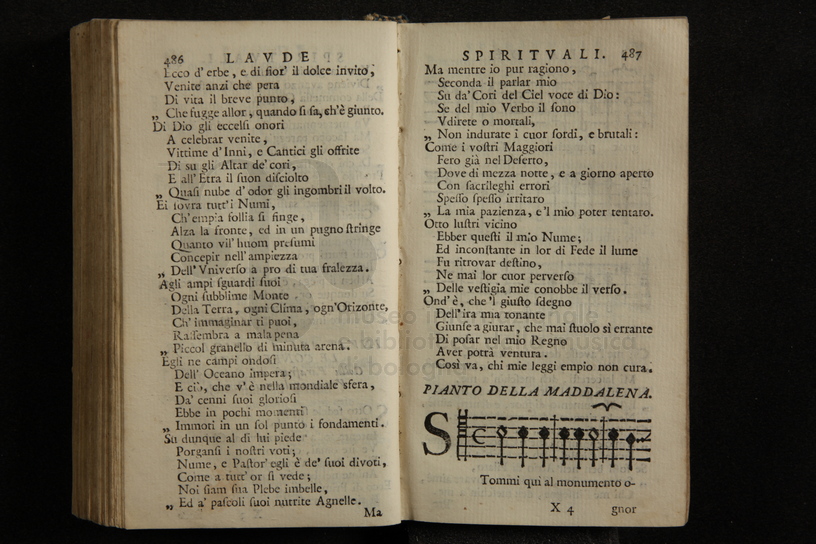 486 LAVDE
Ecco d' erbe, e di fior' il dolce invito,
Venite anzi che pera
Di vita il breve punto,
„ Che fugge allor, quando si sa, ch'è giunto.
Di Dio gli eccelsi onori
A celebrar venite,
Vittime d' Inni, e Cantici gli offrite
Di su gli Altar de' cori,
E all' Etra il suon disciolto
„ Quasi nube d' odor gli ingombri il volto.
Ei sovra tutt' i Numi,
Ch' empia follia si finge,
Alza la fronte, ed in un pugno stringe
Quanto vil' huom presumi
Concepir nell' ampiezza
„ Dell' Vniverso a pro di tua fralezza.
Agli ampi sguardi suoi
Ogni subblime Monte
Della Terra, ogni Clima, ogn' Orizonte,
Ch' immaginar ti puoi,
Rassembra a mala pena
„ Piccol granello di minuta arena.
Egli ne campi ondosi
Dell' Oceano impera;
E ciò, che v' è nella mondiale sfera,
Da' cenni suoi gloriosi
Ebbe in pochi momenti
„ Immoti in un sol punto i fondamenti.
Su dunque al di lui piede
Porgansi i nostri voti;
Nume, e Pastor' egli è de' suoi divoti,
Come a tutt' or si vede;
Noi siam sua Plebe imbelle,
„ Ed a' pascoli suoi nutrite Agnelle.
Ma
SPIRITVALI. 487
Ma mentre io pur ragiono,
Seconda il parlar mio
Su da' Cori del Ciel voce di Dio:
Se del mio Verbo il sono
Vdirete o mortali,
„ Non indurate i cuor sordi, e brutali:
Come i vostri Maggiori
Fero già nel Deserto,
Dove di mezza notte, e a giorno aperto
Con sacrileghi errori
Spesso spesso irritaro
„ La mia pazienza, e 'l mio poter tentaro.
Otto lustri vicino
Ebber questi il mio Nume;
Ed inconstante in lor di Fede il lume
Fu ritrovar destino,
Ne mai lor cuor perverso
„ Delle vestigia mie conobbe il verso.
Ond' è, che 'l giusto sdegno
Dell' ira mia tonante
Giunse a giurar, che mai stuolo sì errante
Di posar nel mio Regno
Aver potrà ventura.
Così va, chi mie leggi empio non cura.
PIANTO DELLA MADDALENA.
S
Tommi qui al monumento o-
X 4 gnor